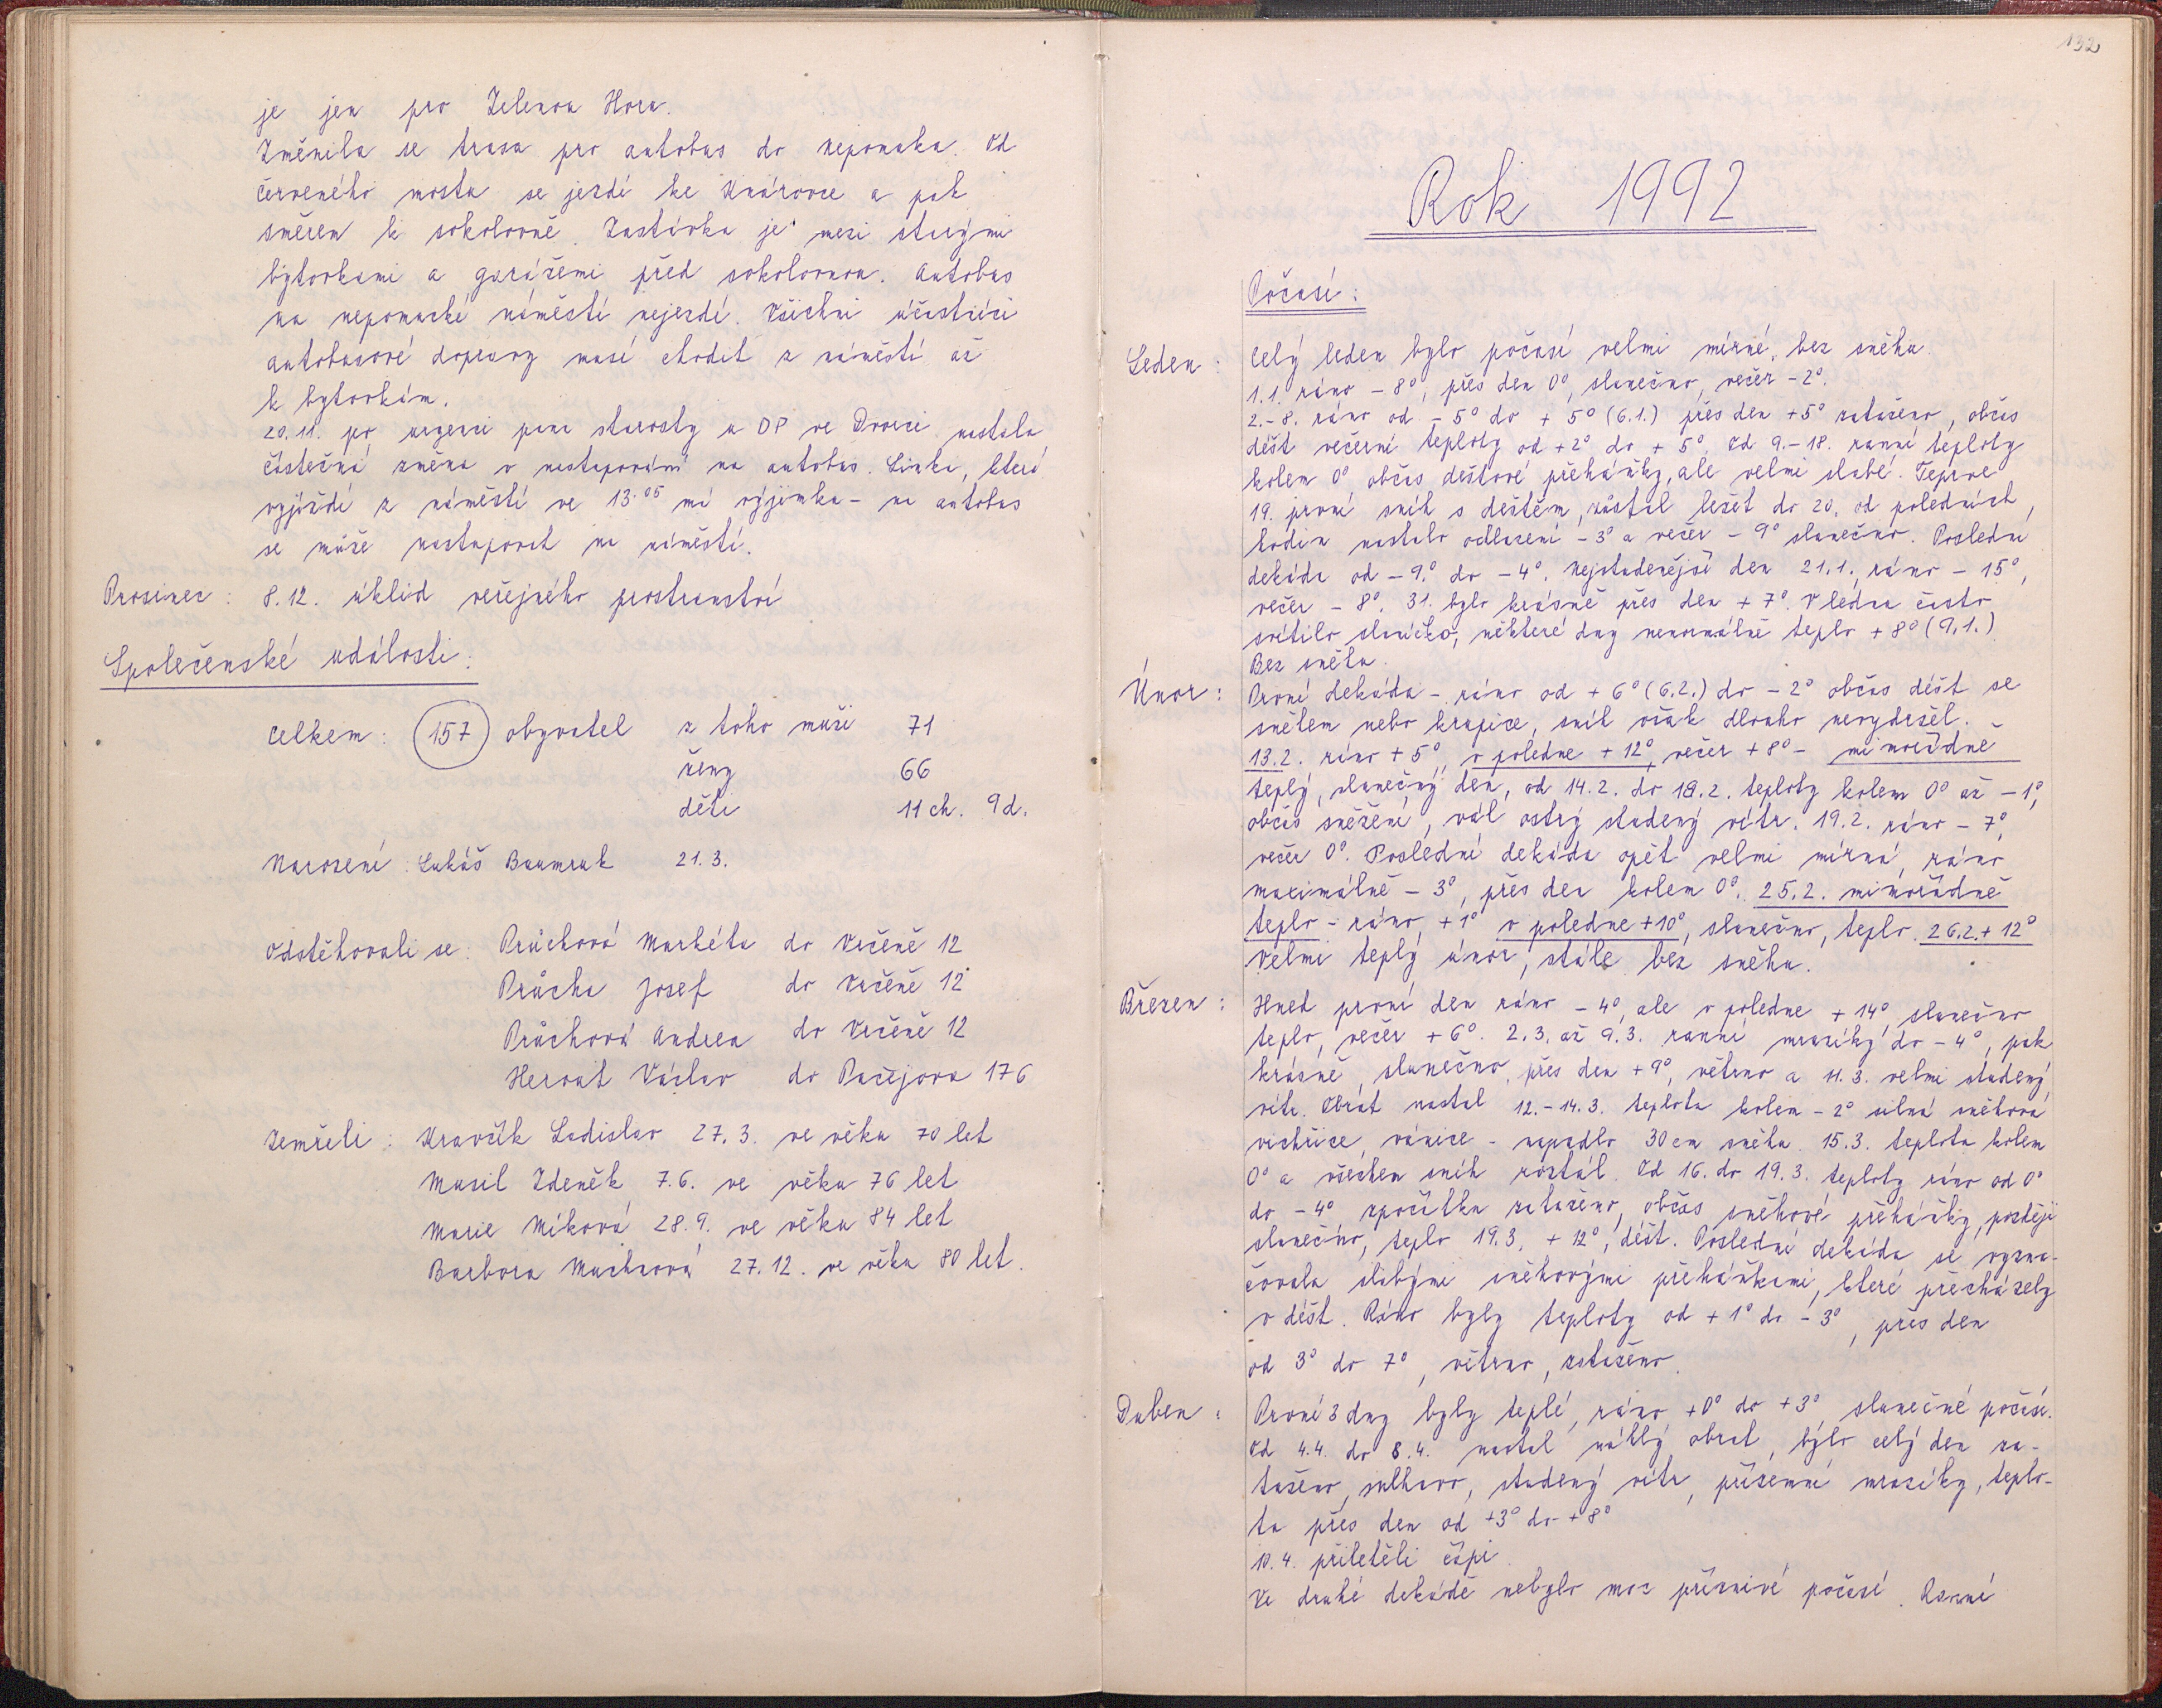 je jen pro Zelenou Horu.
Změnila se trasa pro autobus do Nepomuka. Od
Červeného mostu se jezdí ke Knárovce a pak
směrem k sokolovně. Zastávka je mezi starými
bytovkami a garážemi před sokolovnou. Autobus
na nepomucké náměstí nejezdí. Všichni účastníci
autobusové dopravy musí chodit z náměstí až
k bytovkám.
20.11. po urgenci pana starosty u OP ve Dvorci nastala
částečná změna v nastupování na autobus. Linka, která
vyjíždí z náměstí ve 13.05 má výjimku - na autobus
se může nastupovat na náměstí.
Prosinec: 8.12. úklid veřejného prostranství
Společenské události:
Celkem: 157 obyvatel z toho muži 71
ženy 66
děti 11 ch. 9 d.
Narození: Lukáš Baumruk 21.3.
Odstěhovali se: Průchová Markéta do Vrčeně 12
Průcha Josef do Vrčeně 12
Průchová Andrea do Vrčeně 12
Herout Václav do Pačejova 176
Zemřeli: Kravčík Ladislav 27.3. ve věku 70 let
Musil Zdeněk 7.6. ve věku 76 let
Marie Míková 28.9. ve věku 84 let
Barbora Machová 27.12. ve věku 80 let.
132
Rok 1992
Počasí:
Leden: Celý leden bylo počasí velmi mírné, bez sněhu.
1.1. ráno -8°, přes den 0°, slunečno, večer -2°.
2.-8. ráno od -5° do +5° (6.1.) přes den +5° zataženo, občas
déšť večerní teploty od +2° do +5°. Od 9.-18. ranní teploty
kolem 0° občas dešťové přeháňky, ale velmi slabé. Teprve
19. první sníh s deštěm, zůstal ležet do 20. od poledních
hodin nastalo ochlazení -3° a večer -9° slunečno. Poslední
dekáda od -9° do -4°. Nejstudenější den 21.1., ráno -15°,
večer -8°. 31. bylo krásně přes den +7°. V lednu často
svítilo sluníčko, některé dny nenormálně teplo +8° (9.1.)
Bez sněhu.
Únor: První dekáda - ráno od +6° (6.2.) do -2° občas déšť se
sněhem nebo krupice, sníh však dlouho nevydržel.
13.2. ráno +5°, v poledne +12°, večer +8° - mimořádně
teplý, slunečný den, od 14.2. do 18.2. teploty kolem 0° až -1°,
občas sněžení, vál ostrý studený vítr. 19.2. ráno -7°,
večer 0°. Poslední dekáda opět velmi mírná, ráno
maximálně -3°, přes den kolem 0°. 25.2. mimořádně
teplo - ráno +1° v poledne +10°, slunečno, teplo. 26.2. +12°
Velmi teplý únor, stále bez sněhu.
Březen: Hned první den ráno -4°, ale v poledne +14° slunečno
teplo, večer +6°. 2.3. až 9.3. ranní mrazíky do -4°, pak
krásně, slunečno, přes den +9°, větrno a 11.3. velmi studený
vítr. Obrat nastal 12.-14.3. teplota kolem -2° silná sněhová
vichřice, vánice - napadlo 30 cm sněhu. 15.3. teplota kolem
0° a všechen sníh roztál. Od 16. do 19.3. teploty ráno od 0°
do -4° zpočátku zataženo, občas sněhové přeháňky, později
slunečno, teplo 19.3. +12°, déšť. Poslední dekáda se vyzna-
čovala slabými sněhovými přeháňkami, které přecházely
v déšť. Ráno byly teploty od +1° do -3°, přes den
od 3° do 7°, větrno, zataženo.
Duben: První 3 dny byly teplé, ráno +0° do +3° slunečné počasí.
Od 4.4. do 8.4. nastal náhlý obrat, bylo celý den za-
taženo, mlhavo, studený vítr, přízemní mrazíky, teplo-
ta přes den od +3° do +8°
10.4. přiletěli čápi.
Ve druhé dekádě nebylo moc příznivé počasí. Ranní